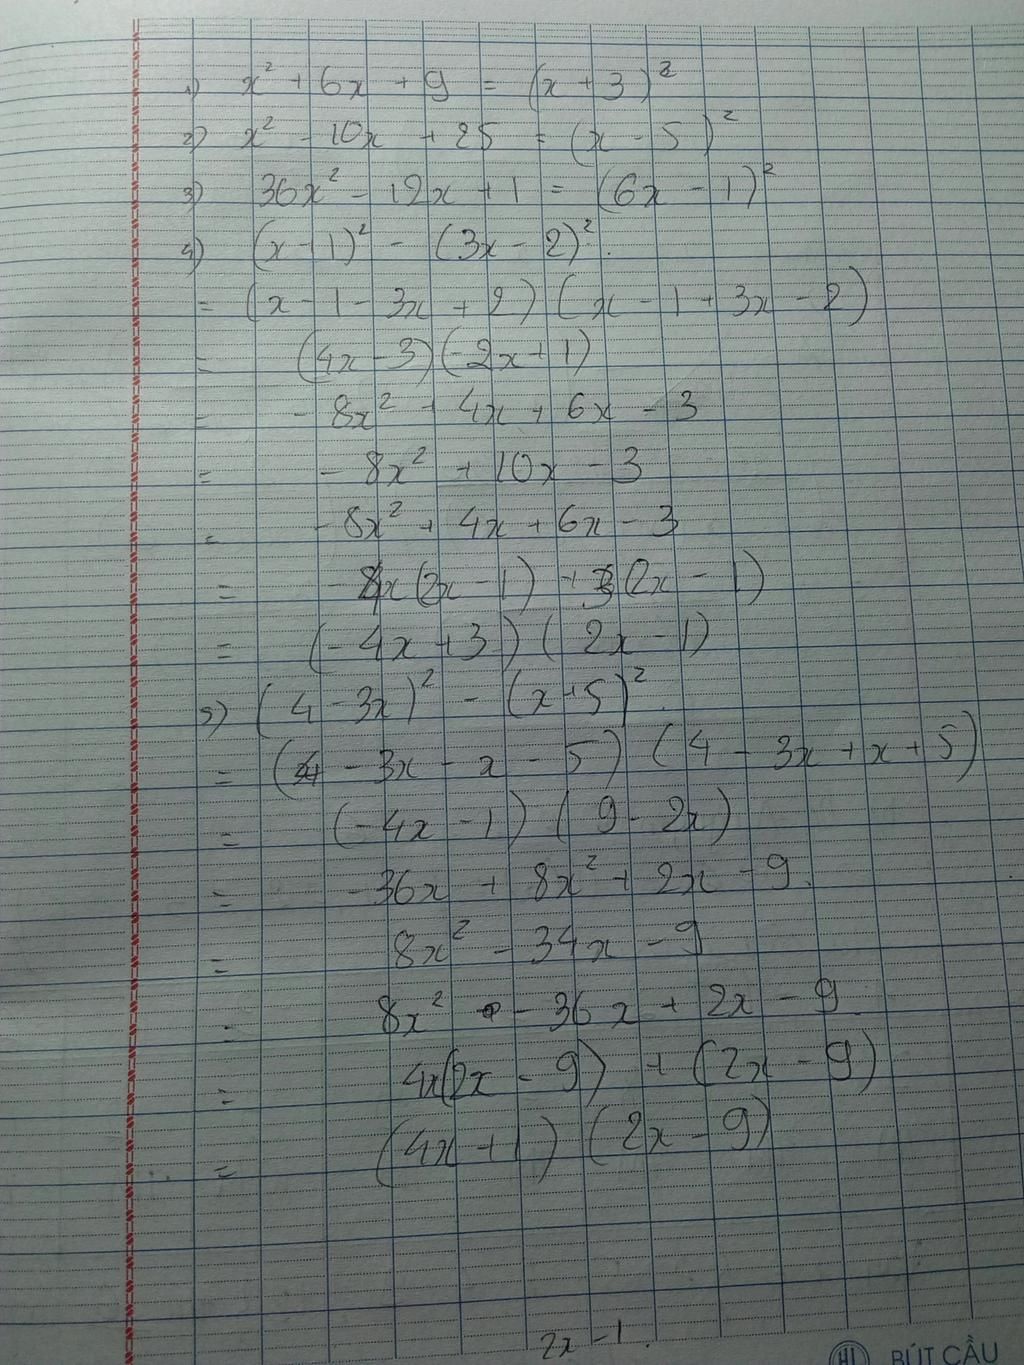 1) x² + 6x + 9 = (x + 3)²
2) x² - 10x + 25 = (x - 5)²
3) 36x² - 12x + 1 = (6x - 1)²
4) (x - 1)² - (3x - 2)².
= (x - 1 - 3x + 2) (x - 1 + 3x - 2)
= (4x - 3)(-2x + 1)
= - 8x² + 4x + 6x - 3
= - 8x² + 10x - 3
= - 8x² + 4x + 6x - 3
= - 4x(2x - 1) + 3(2x - 1)
= (- 4x + 3) (2x - 1)
5) (4 - 3x)² - (x + 5)².
= (4 - 3x - x - 5) (4 - 3x + x + 5)
= (-4x - 1) (9 - 2x)
= -36x + 8x² + 2x - 9.
= 8x² - 34x - 9
= 8x² - 36x + 2x - 9.
= 4x(2x - 9) + (2x - 9)
= (4x + 1) (2x - 9)
2x - 1
BÚT CẦU